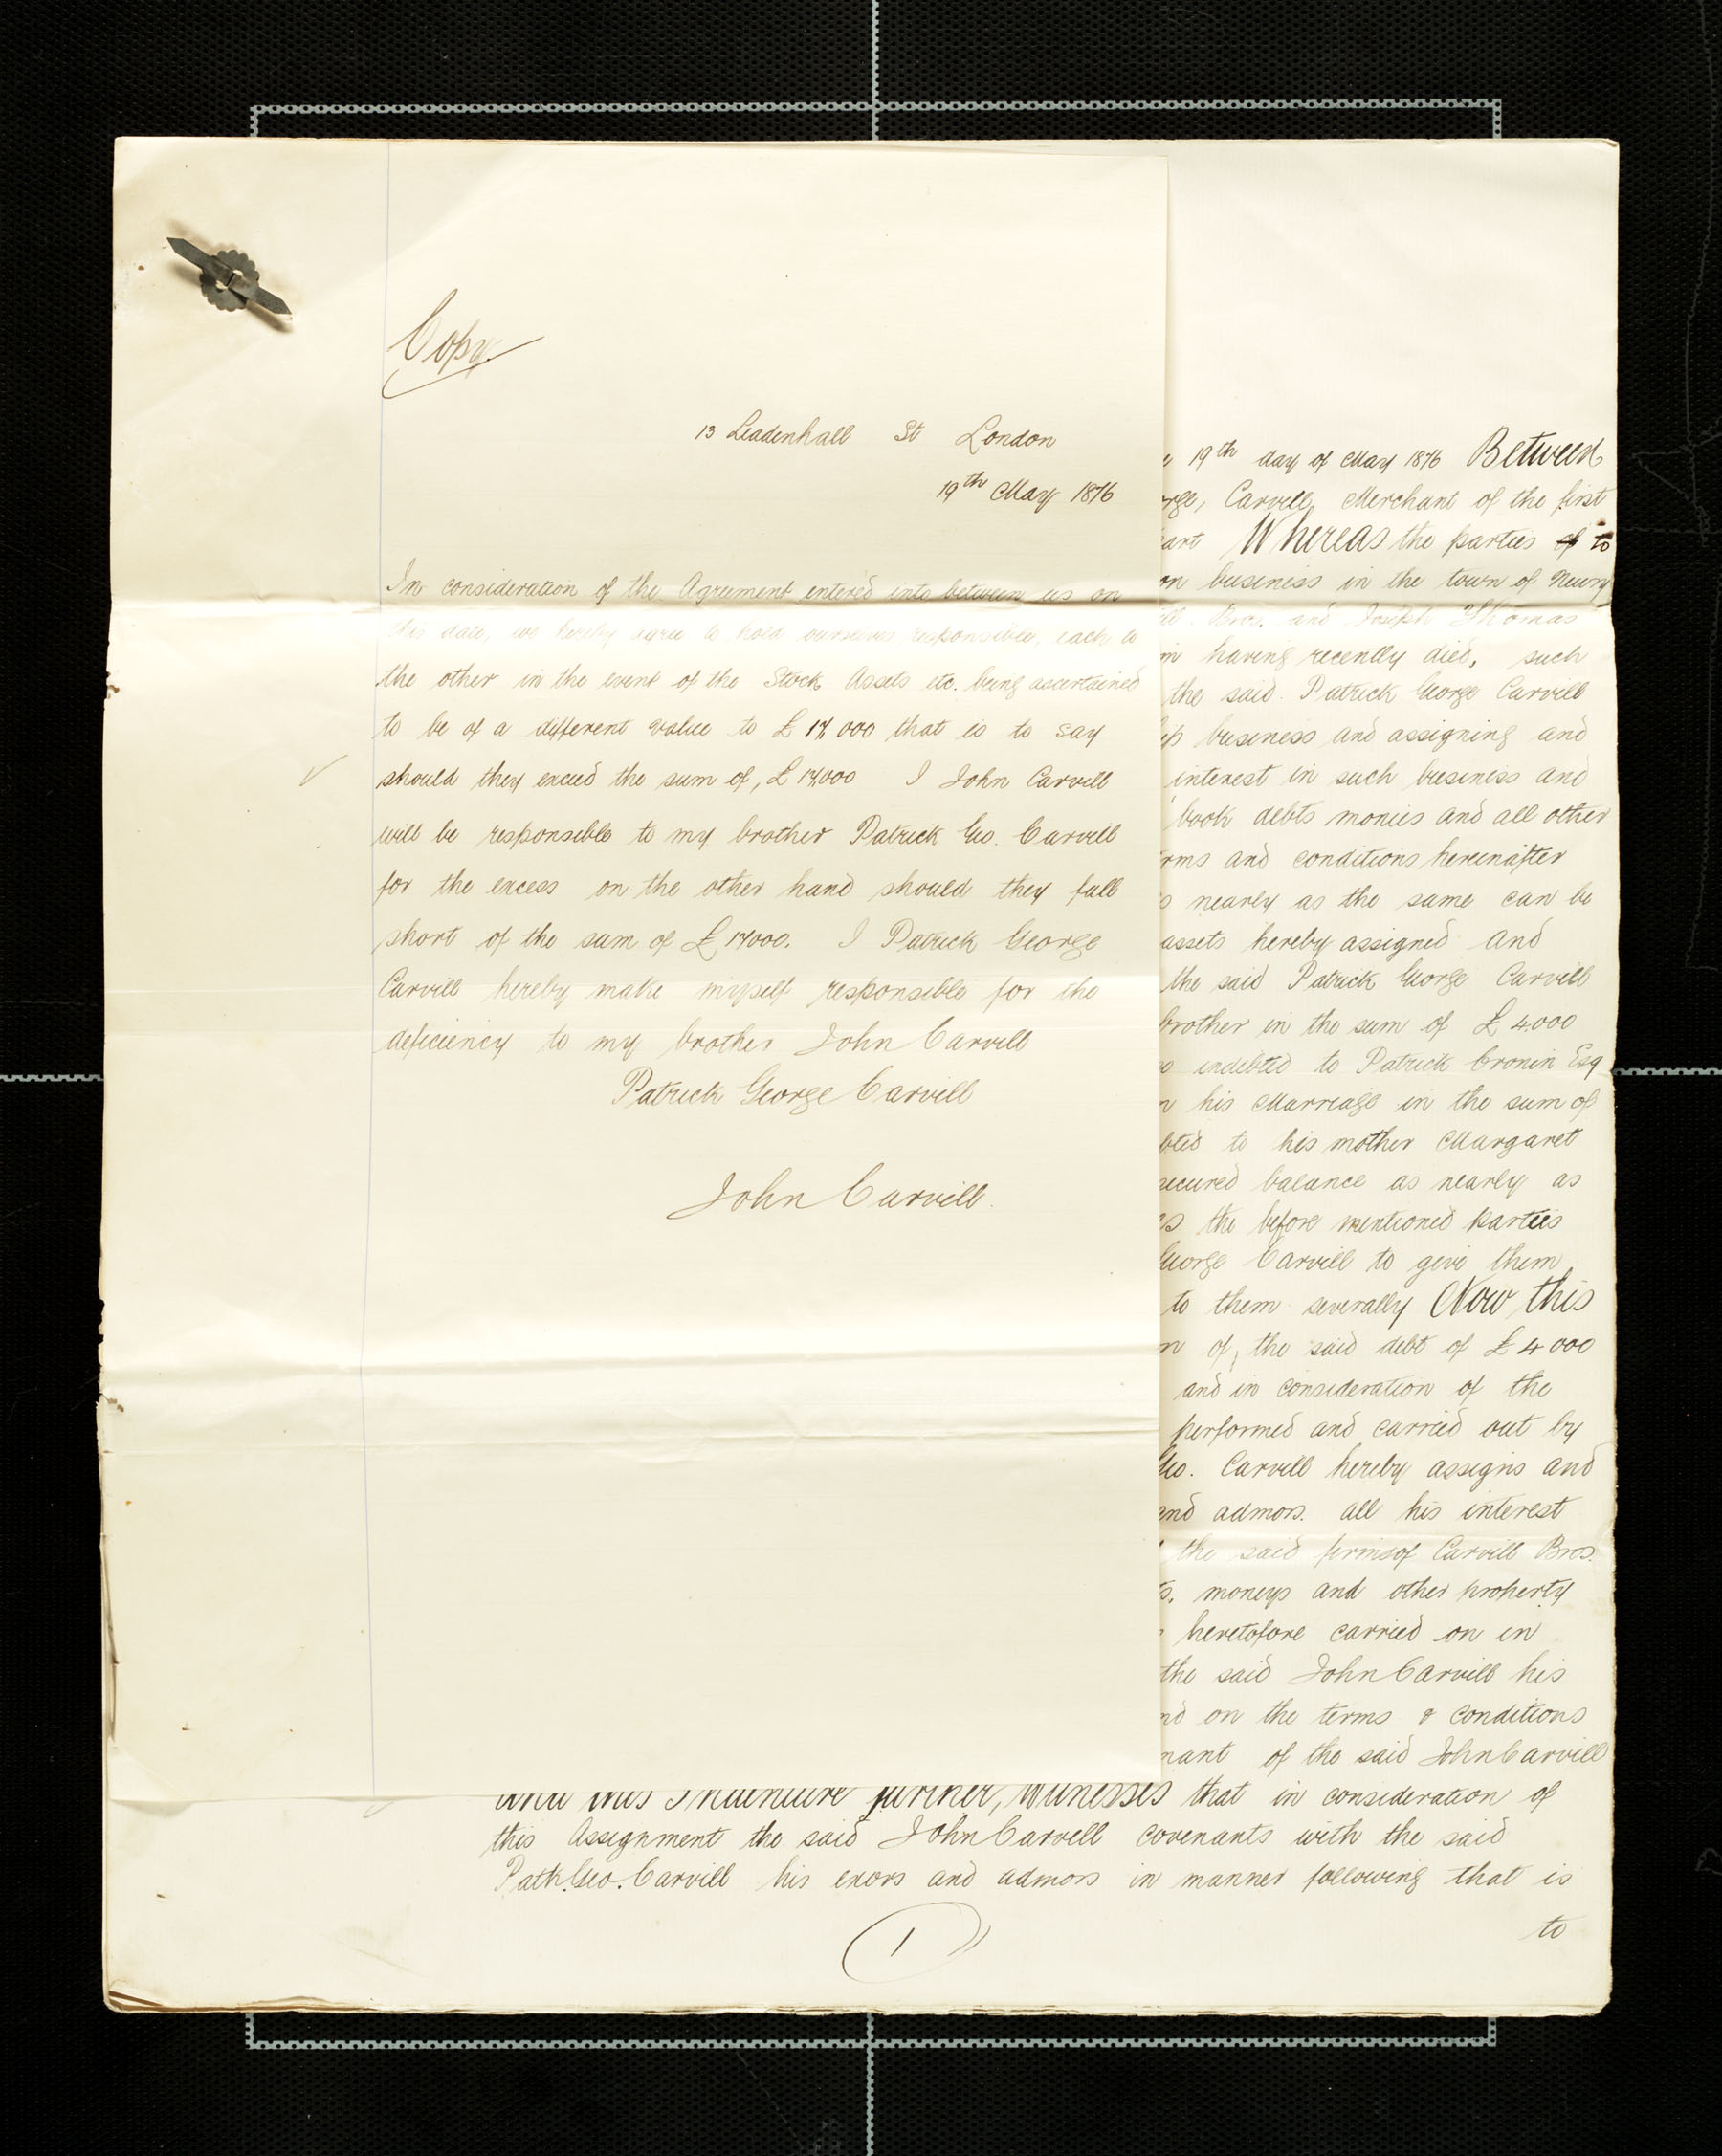 Copy.
13 Leadenhall St London
19th May 1876
In consideration of the Agreement entered into between us on
this date, we hereby agree to hold ourselves responsible, each to
the other in the event of the Stock Assets etc. being ascertained
to be of a different value to £17,000 that is to say
should they exceed the sum of, £17,000 I John Carvill
will be responsible to my brother Patrick Geo. Carvill
for the excess on the other hand should they fall
short of the sum of £17000. I Patrick George
Carvill hereby make myself responsible for the
deficiency to my brother John Carvill
Patrick George Carvill
John Carvill.
19th day of May 1876 Between
Carvill, Merchant of the first
Whereas the parties of to
business in the town of Newry
Bros. and Joseph Thomas
having recently died, such
the said Patrick George Carvill
business and assigning and
interest in such business and
book debts monies and all other
and conditions hereinafter
nearly as the same can be
assets hereby assigned and
the said Patrick George Carvill
brother in the sum of £4.000
indebted to Patrick Cronin Esq
his Marriage in the sum of
to his mother Margaret
secured balance as nearly as
the before mentioned parties
George Carvill to give them
to them severally Now this
of, the said debt of £4000
and in consideration of the
performed and carried out by
Geo. Carvill hereby assigns and
and admors. all his interest
the said firms of Carvill Bros.
moneys and other property
heretofore carried on in
the said John Carvill his
on the terms & conditions
of the said John Carvill
and this Indenture further, Witnesses that in consideration of
this Assignment the said John Carvill covenants with the said
Patk. Geo. Carvill his exors and admors in manner following that is
to
1